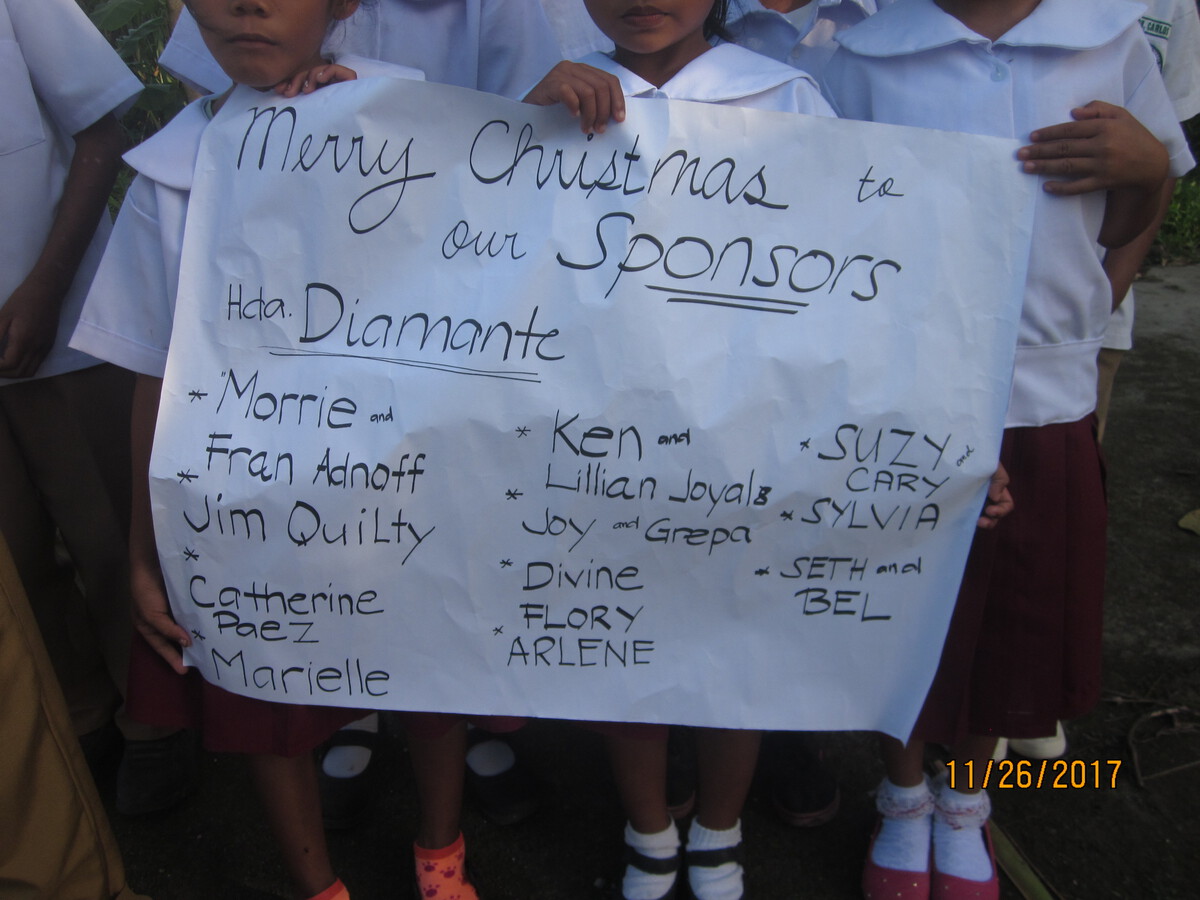 Merry Christmas to
our Sponsors
Hda. Diamante
* "Morrie and
Fran Adnoff
* Jim Quilty
* Catherine
Paez
* Marielle
* Ken and
Lillian Joyal
* Joy and Grepa
* Divine
FLORY
* ARLENE
* SUZY and
CARY
* SYLVIA
* SETH and
BEL
11/26/2017